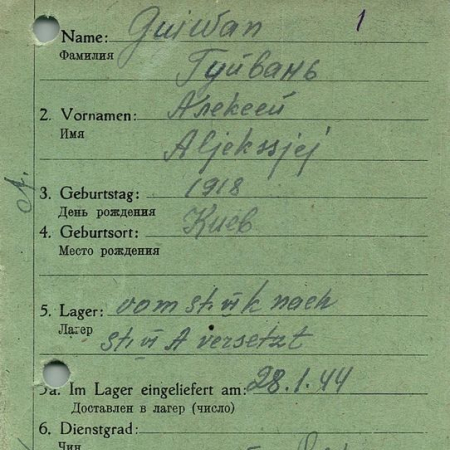 1
Name: Guiwan
Фамилия
Гуйвань
2. Vornamen: Алексей
Имя
Aljekssjej
3. Geburtstag: 1918
День рождения
4. Geburtsort: Киев
Место рождения
5. Lager: vom St. VI K nach
Лагер
St. VI A versetzt
5a. Im Lager eingeliefert am: 28.1.44
Доставлен в лагер (число)
6. Dienstgrad:
Чин